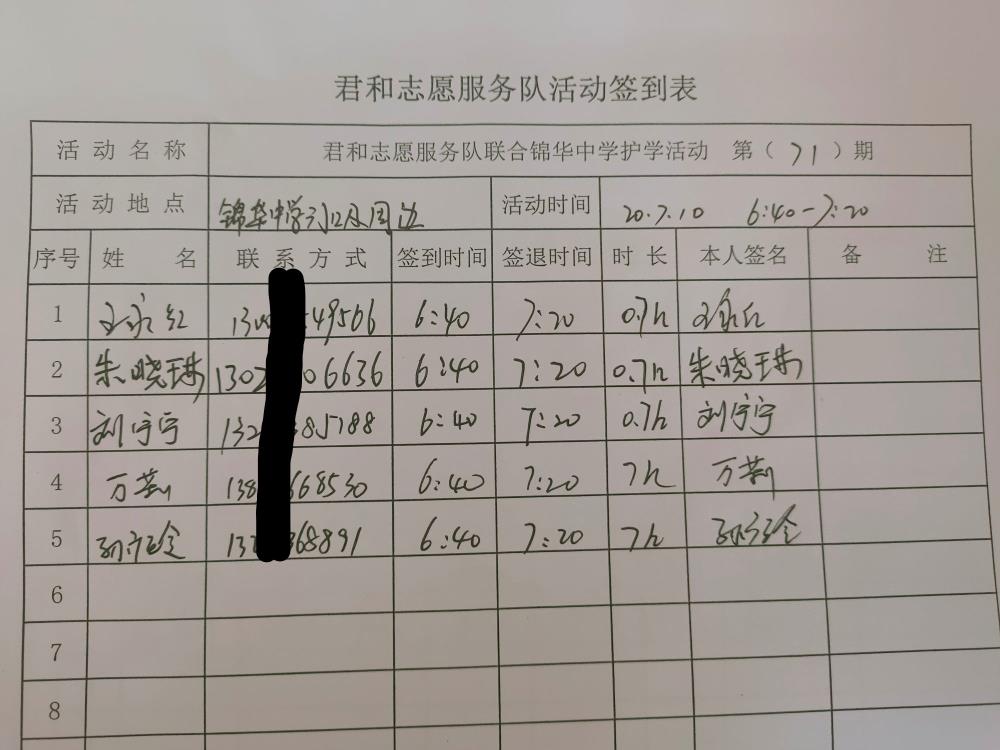 君和志愿服务队活动签到表
活动名称 君和志愿服务队联合锦华中学护学活动 第（71）期
活动地点 锦华中学门口及周边 活动时间 20.7.10 6:40-7:20
序号 姓名 联系方式 签到时间 签退时间 时长 本人签名 备注
1 王永红 130 49566 6:40 7:20 0.7h 王永红
2 朱晓琳 1302 06636 6:40 7:20 0.7h 朱晓琳
3 刘宇宁 132 85788 6:40 7:20 0.7h 刘宇宁
4 万莉 138 668530 6:40 7:20 7h 万莉
5 132 368891 6:40 7:20 7h
6
7
8